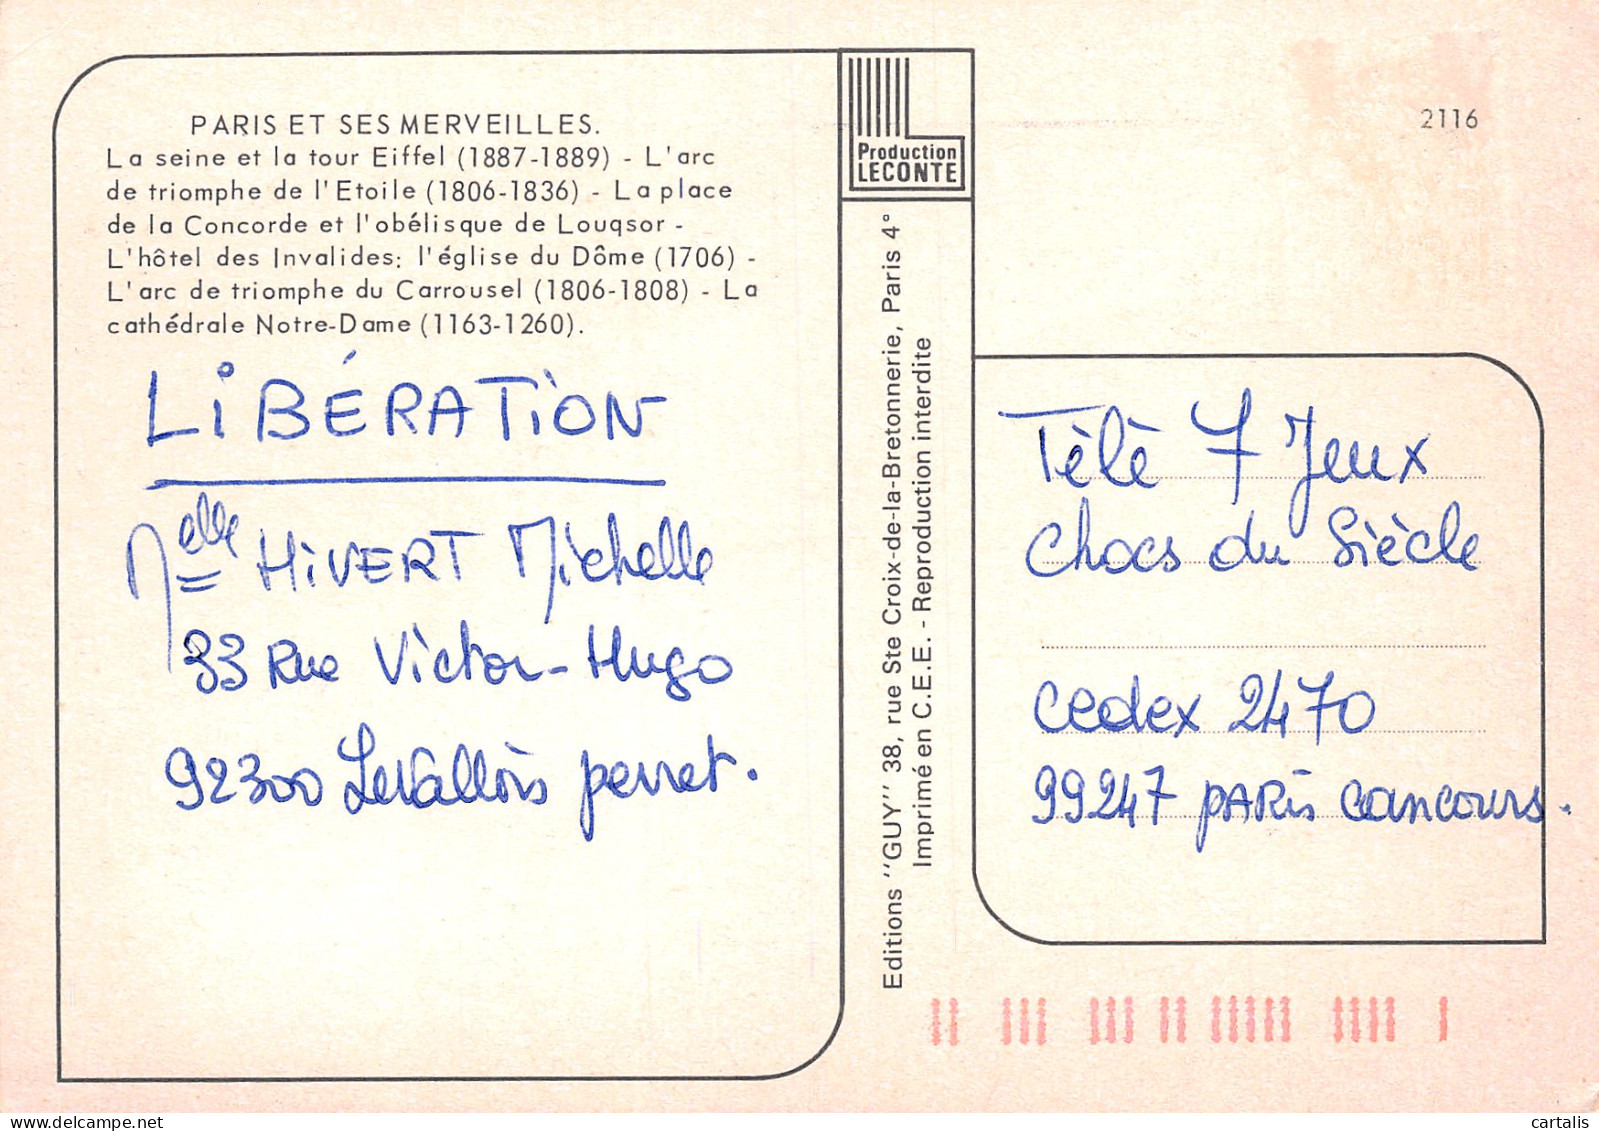 PARIS ET SES MERVEILLES.
La seine et la tour Eiffel (1887-1889) - L'arc
de triomphe de l'Etoile (1806-1836) - La place
de la Concorde et l'obélisque de Louqsor -
L'hôtel des Invalides: l'église du Dôme (1706) -
L'arc de triomphe du Carrousel (1806-1808) - La
cathédrale Notre-Dame (1163-1260).
LiBÉRATiON
Melle HiVERT Michelle
33 Rue Victor-Hugo
92300 Levallois perret.
Production
LECONTE
Editions "GUY" 38, rue Ste Croix-de-la-Bretonnerie, Paris 4°
Imprimé en C.E.E. - Reproduction interdite
2116
Tèlè 7 Jeux
Chocs du Siècle
cedex 2470
99247 PARis concours.
cartalis